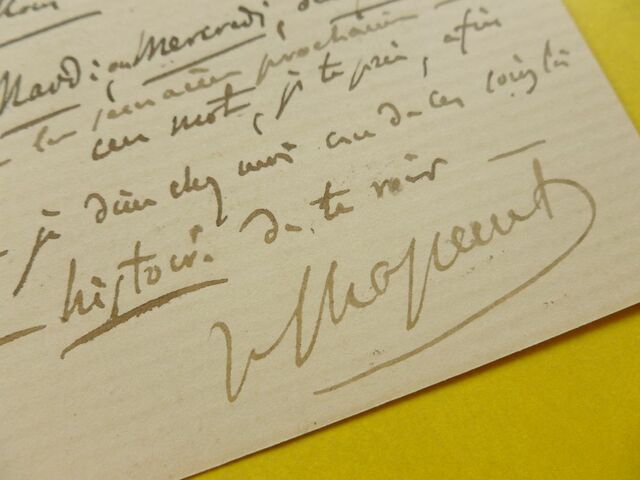 Mardi ou Mercredi, de
la semaine prochaine
un mot, je te prie, afin
je dîne chez moi un de ces soirs là
histoire de te voir —